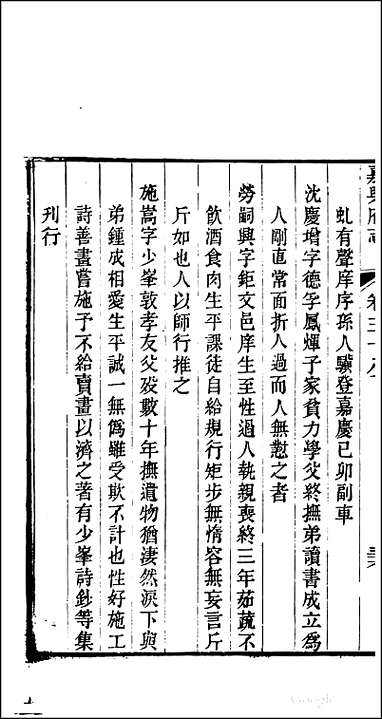 嘉興府志 卷五十八
虬有聲庠序孫人驥登嘉慶己卯副車
沈慶增字德孚鳳煇子家貧力學父終撫弟讀書成立爲
人剛直常面折人過而人無懟之者
勞嗣興字鉅文邑庠生至性過人執親喪終三年茹蔬不
飲酒食肉生平課徒自給規行矩步無惰容無妄言斤
斤如也人以師行推之
施嵩字少峯敦孝友父歿數十年撫遺物猶淒然淚下與
弟鍾成相愛生平誠一無僞雖受欺不計也性好施工
詩善畫嘗施予不給賣畫以濟之著有少峯詩鈔等集
刊行